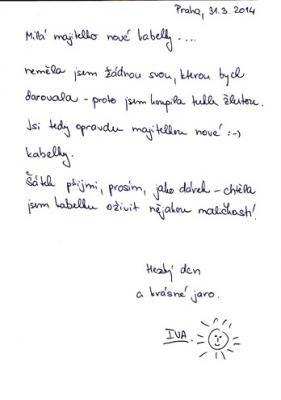 Praha, 31.3.2014
Milá majitelko nové kabelky....
neměla jsem žádnou svou, kterou bych
darovala – proto jsem koupila tuhle žlutou.
Jsi tedy opravdu majitelkou nové :-)
kabelky.
Šátek přijmi, prosím, jako dárek – chtěla
jsem kabelku oživit nějakou maličkostí.
Hezký den
a krásné jaro.
IVA.